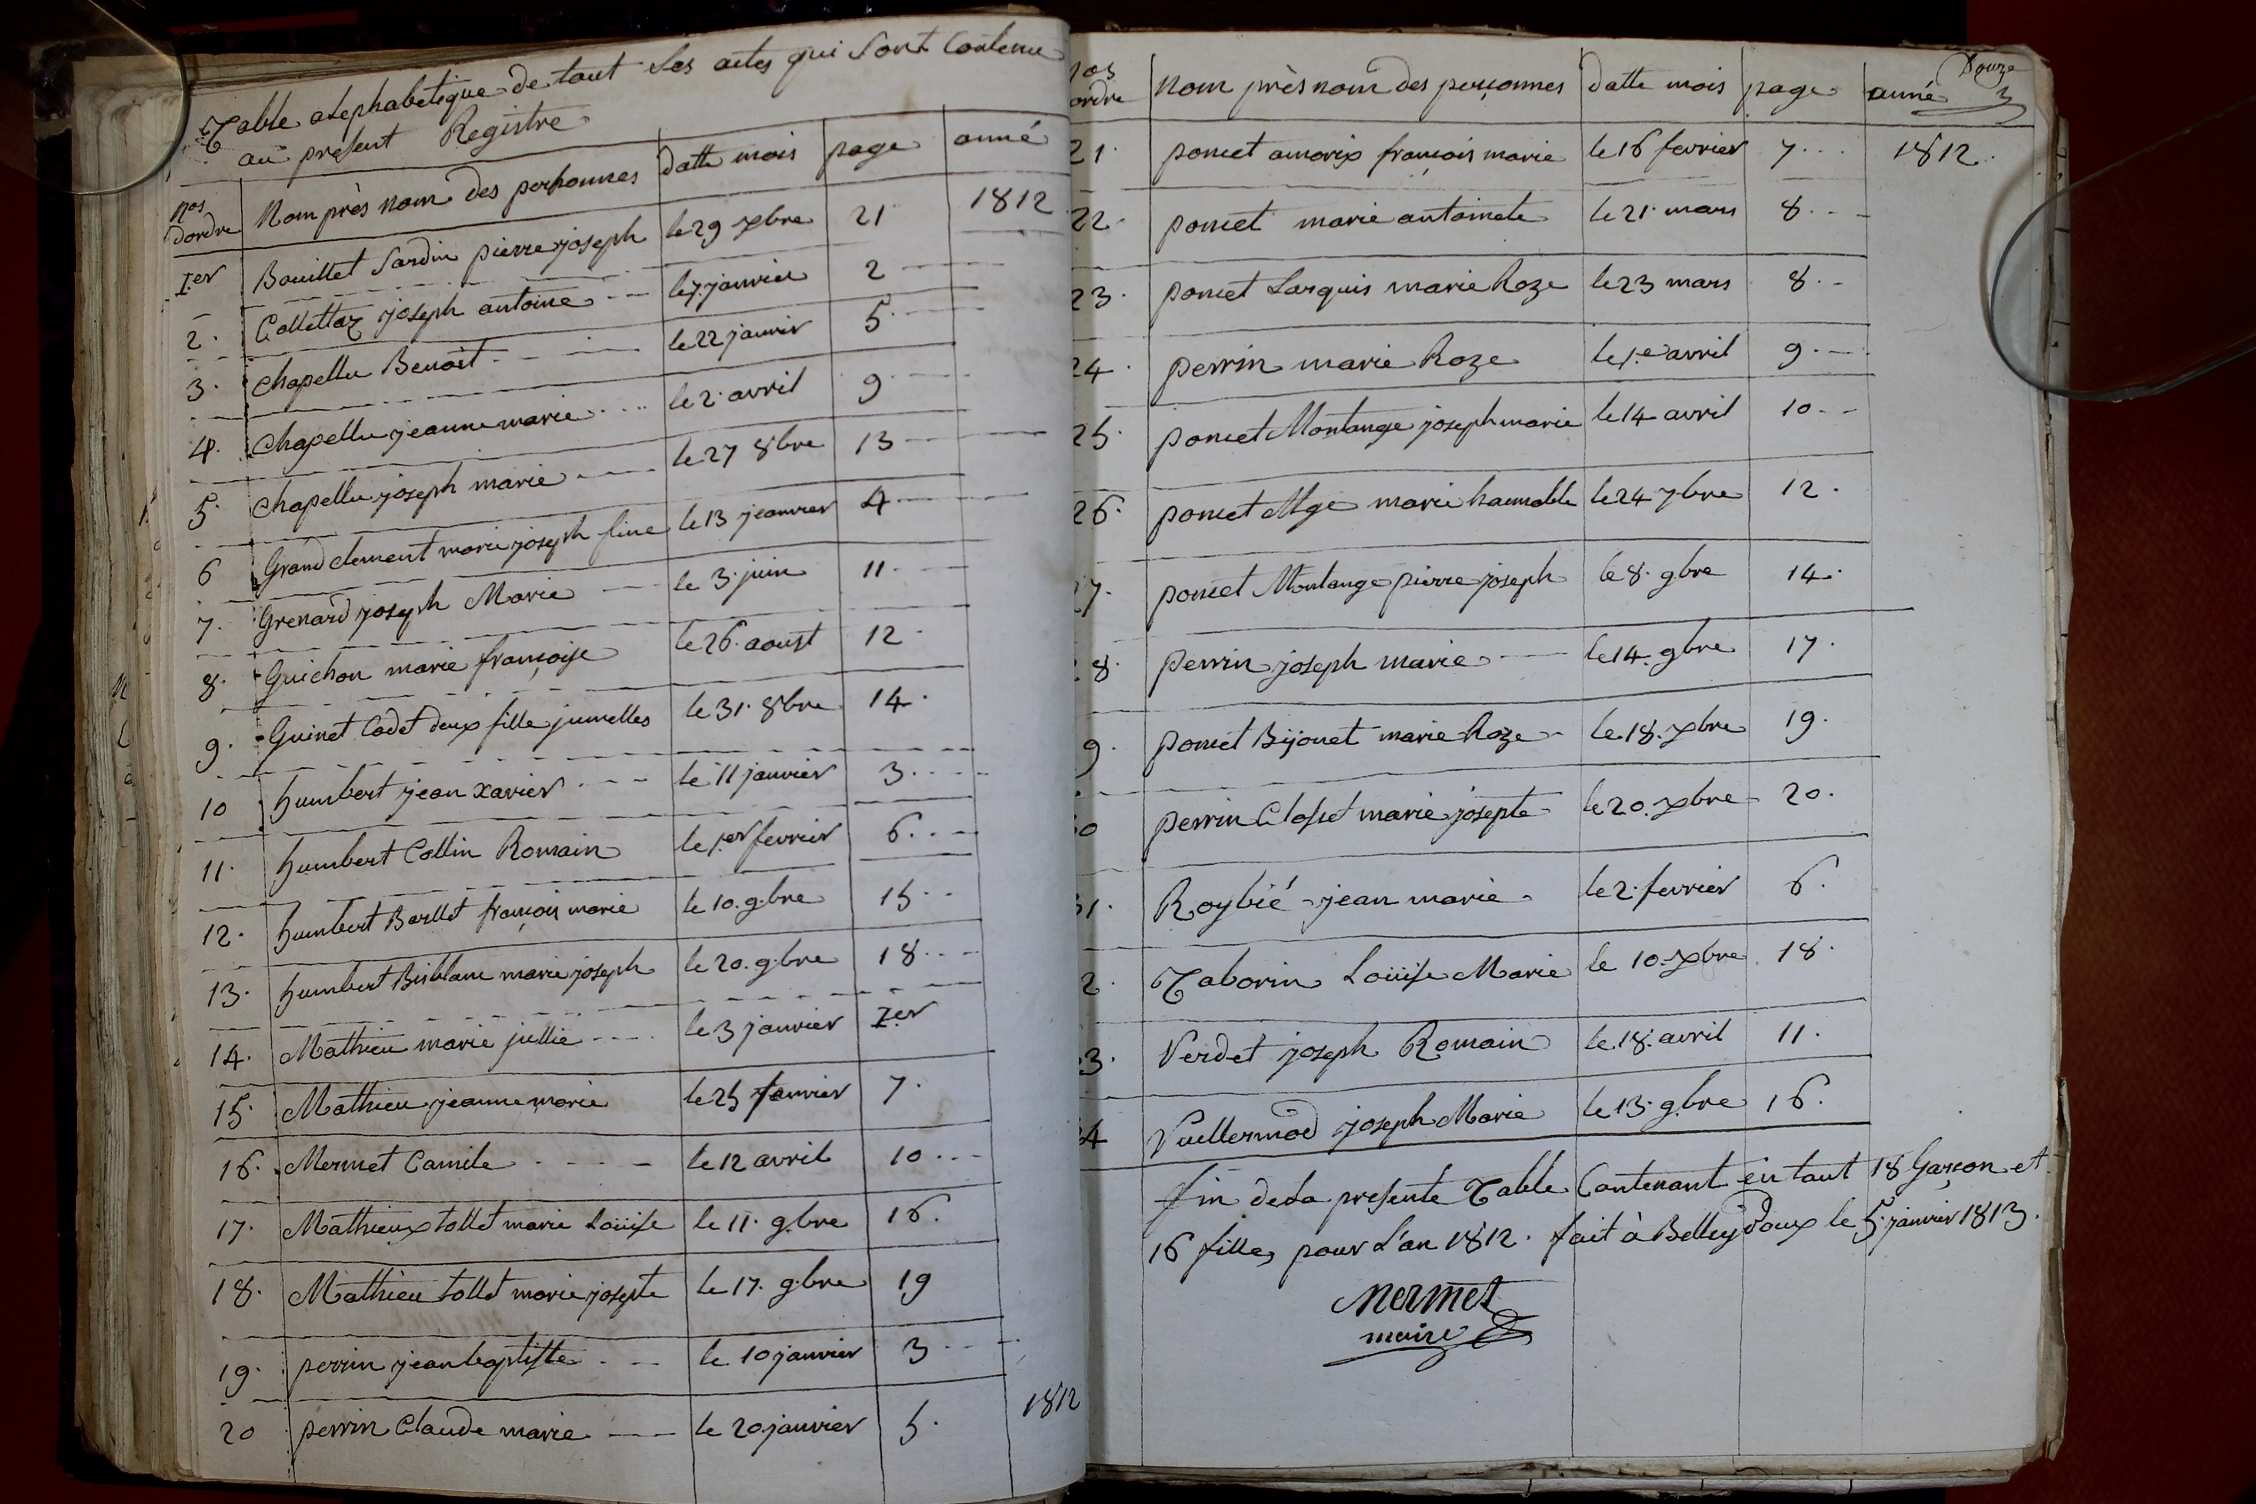 Table alephabetique de tout Les actes qui Sont Contenu
au present Registre
nos dordre Nom près nom des personnes datte mois page anné
1er Bouillet Sardin pierre joseph le 29 xbre 21 1812
2. Collettaz joseph antoine le 7 janvier 2
3. Chapellu Benoit le 22 janvier 5
4. Chapellu jeanne marie le 2. avril 9
5. Chapellu joseph marie le 27 8bre 13
6 Grand clement marie joseph fine le 13 jeanvier 4
7. Grenard joseph Marie le 3. juin 11
8. Guichon marie françoise le 26. aoust 12
9. Guinet Cadet deux fille jumelles le 31. 8bre 14.
10 humbert jean xavier le 11 janvier 3
11. humbert Collin Romain le 1.er fevrier 6
12. humbert Barllet françois marie le 10. 9bre 15
13. humbert Bisblanc marie joseph le 20. 9bre 18
14. Mathieu marie jullie le 3 janvier 1er
15. Mathieu jeanne marie le 25 fanvier 7.
16. Mermet Camile le 12 avril 10
17. Mathieux tollet marie Loüise le 11. 9bre 16.
18. Mathieu tollet marie josepte le 17. 9bre 19
19. perrin jean baptiste le 10 janvier 3
20 perrin Claude marie le 20 janvier 5. 1812
Douze
nos ordre Nom près nom des perçonnes datte mois page anné
21. poncet amorix françois marie le 16 fevrier 7 1812
22. poncet marie antoinete le 21. mars 8
23. poncet Larquis marie Roze le 23 mars 8
24. perrin marie Roze le 1.e avril 9
25. poncet Montange joseph marie le 14 avril 10
26. poncet Mge marie haimable le 24 7bre 12.
7. poncet Montange pierre joseph le 8. 9bre 14.
8. perrin joseph marie le 14. 9bre 17.
9. poncet Bijouet marie Roze le 18. xbre 19.
0 perrin Closset marie josepte le 20. xbre 20.
1. Roybié jean marie le 2. fevrier 6.
2. Taborin Loüise Marie le 10. xbre 18.
3. Verdet joseph Romain le 18. avril 11.
4 Vuillermod joseph Marie le 13. 9bre 16.
fin dela presente Table Contenant en tout 18 Garçon et
16 filles pour L'an 1812. fait à Belleydoux le 5. janvier 1813.
Mermet
maire